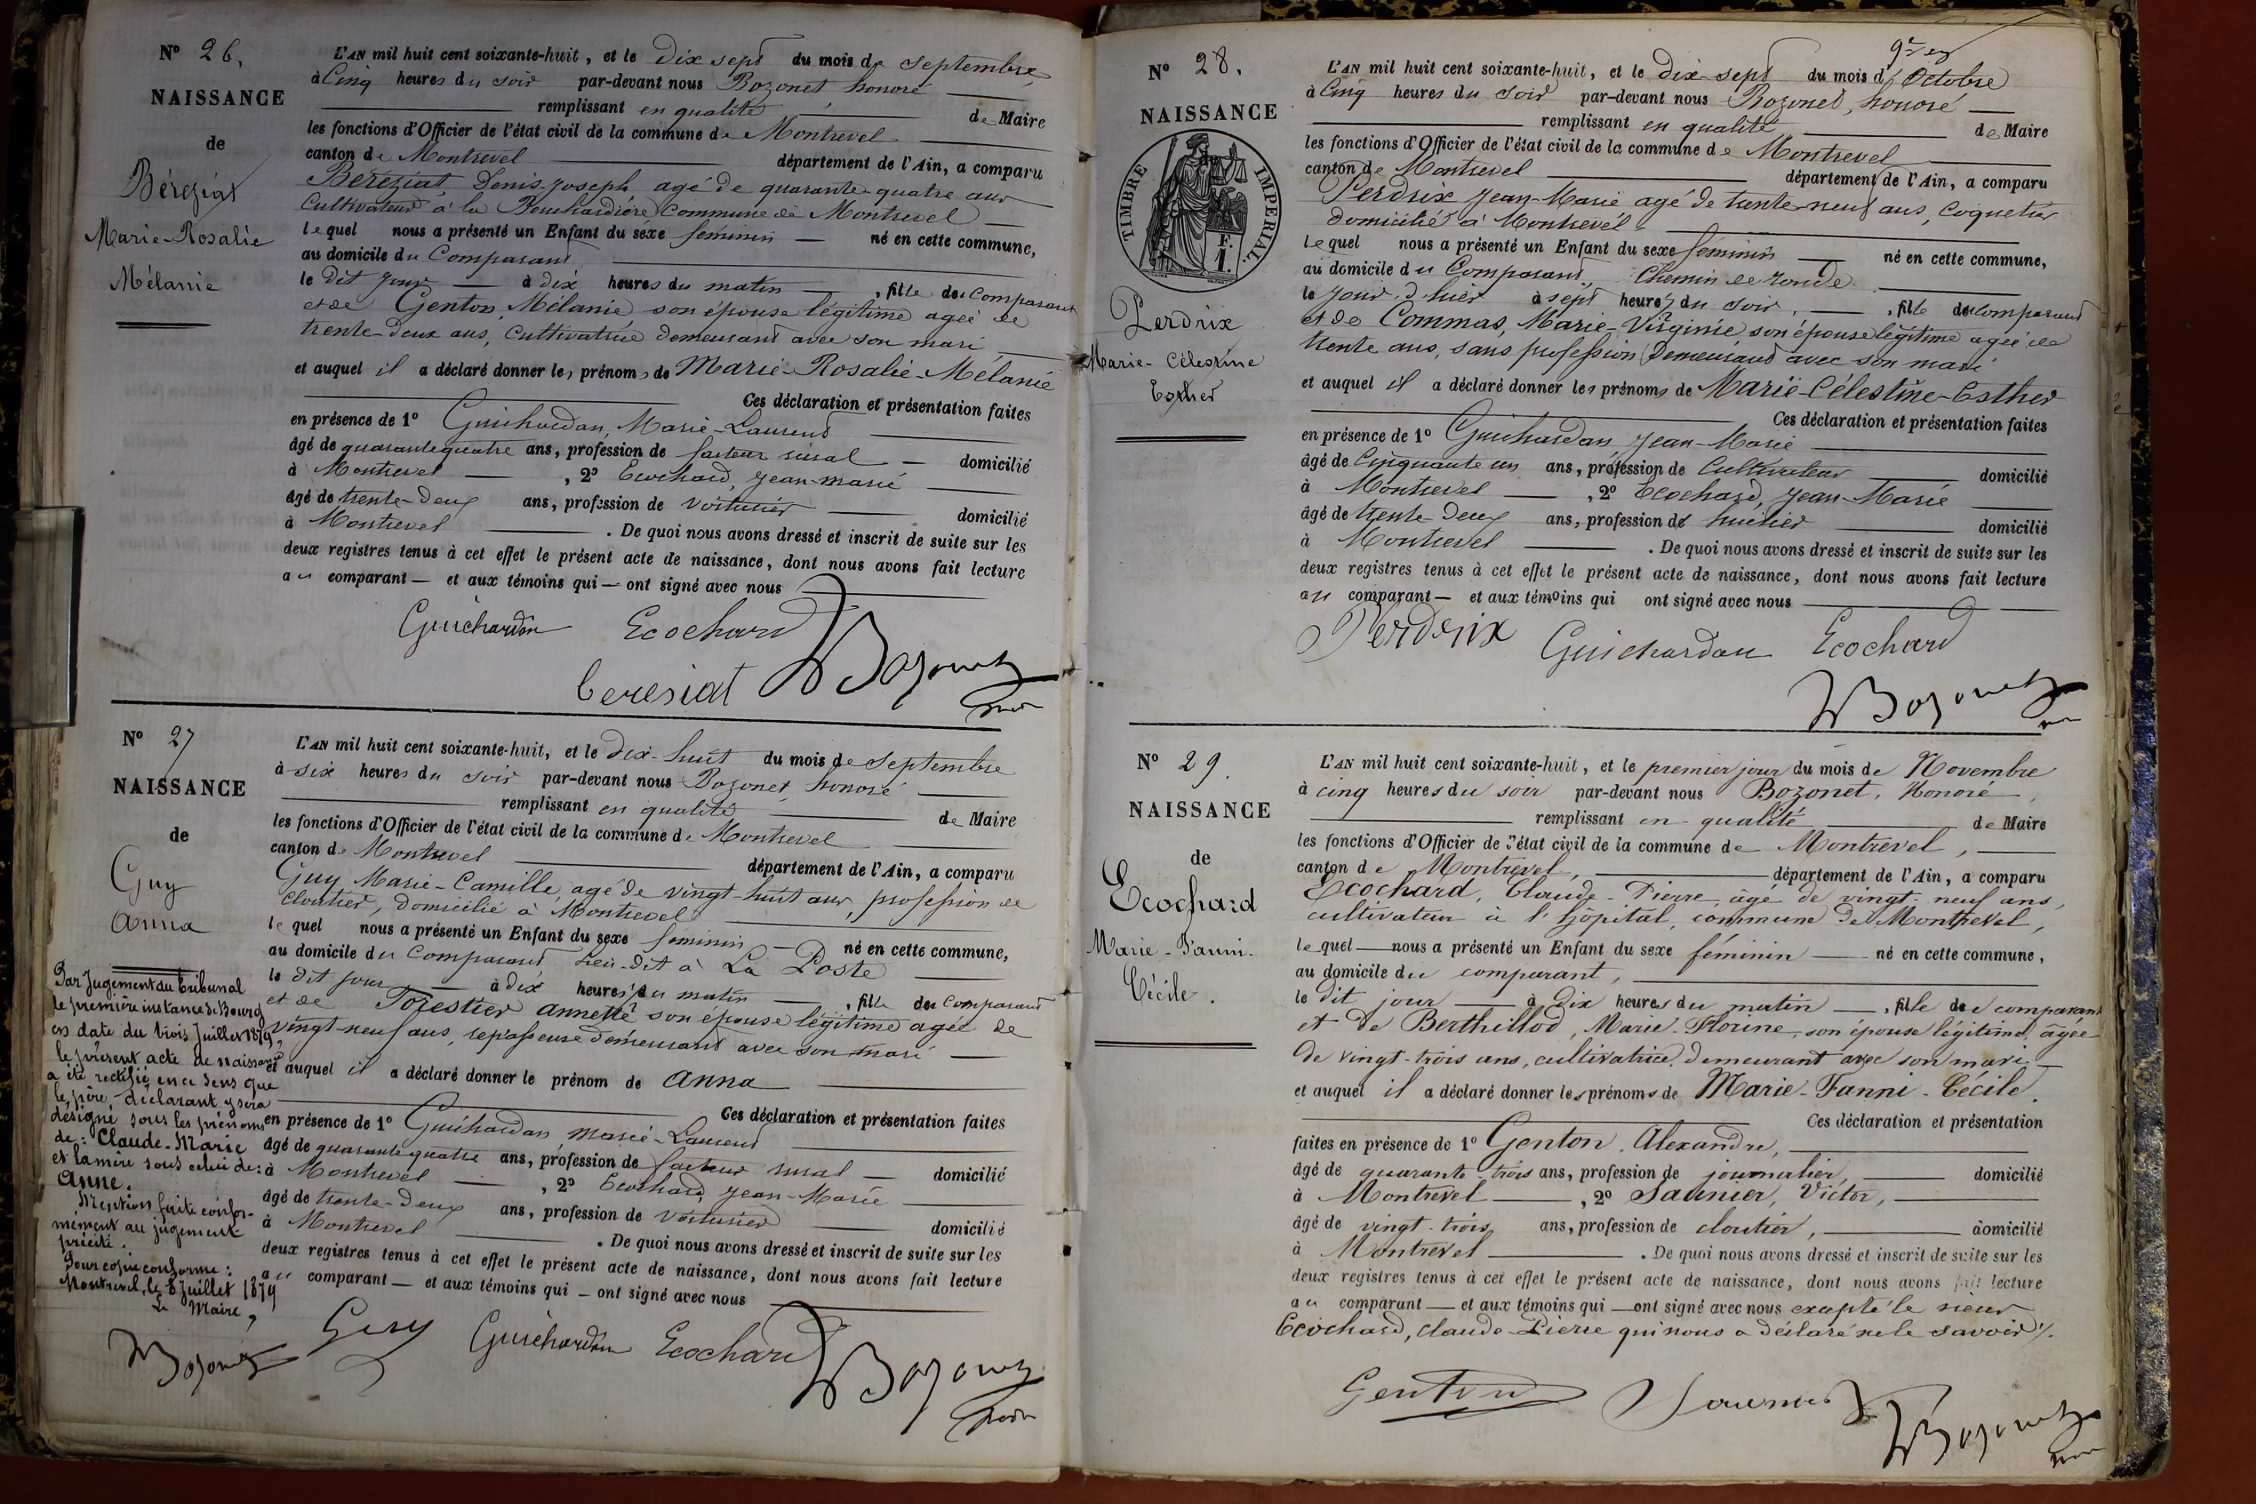 N° 26.
NAISSANCE
de
Béréziat
Marie-Rosalie
Mélanie
L'AN mil huit cent soixante-huit, et le Dix sept du mois de septembre
à Cinq heures du soir par-devant nous Bozonet honoré
remplissant en qualité de Maire
les fonctions d'Officier de l'état civil de la commune de Montrevel
canton de Montrevel département de l'Ain, a comparu
Béréziat Denis-Joseph agé de quarante-quatre ans
Cultivateur à la Bouchardière Commune de Montrevel
lequel nous a présenté un Enfant du sexe féminin né en cette commune,
au domicile du Comparant
le dit jour à dix heures du matin, fille du Comparant
et de Genton, Mélanie son épouse légitime agée de
trente-deux ans, Cultivatrice demeurant avec son mari
et auquel il a déclaré donner les prénoms de Marie-Rosalie-Mélanie
Ces déclaration et présentation faites
en présence de 1° Guichardan, Marie-Laurent
âgé de quarante quatre ans, profession de facteur rural domicilié
à Montrevel, 2° Ecochard, Jean-Marie
âgé de trente-deux ans, profession de voiturier domicilié
à Montrevel. De quoi nous avons dressé et inscrit de suite sur les
deux registres tenus à cet effet le présent acte de naissance, dont nous avons fait lecture
au comparant — et aux témoins qui — ont signé avec nous
Guichardan Ecochard
bereziat Bozonet
N° 27
NAISSANCE
de
Guy
Anna
L'AN mil huit cent soixante-huit, et le dix-huit du mois de septembre
à six heures du soir par-devant nous Bozonet, honoré
remplissant en qualité de Maire
les fonctions d'Officier de l'état civil de la commune de Montrevel
canton de Montrevel département de l'Ain, a comparu
Guy Marie-Camille agé de vingt-huit ans, profession de
cloutier, domicilié à Montrevel
lequel nous a présenté un Enfant du sexe féminin né en cette commune,
au domicile du Comparant lieu-dit à La Poste
le dit jour à dix heures du matin, fille du Comparant
et de Forestier annette son épouse légitime agée de
vingt-neuf ans, repasseuse demeurant avec son mari
et auquel il a déclaré donner le prénom de Anna
Ces déclaration et présentation faites
en présence de 1° Guichardan Marie-Laurent
âgé de quarante quatre ans, profession de facteur rural domicilié
à Montrevel, 2° Ecochard Jean-Marie
âgé de trente-deux ans, profession de voiturier domicilié
à Montrevel. De quoi nous avons dressé et inscrit de suite sur les
deux registres tenus à cet effet le présent acte de naissance, dont nous avons fait lecture
au comparant — et aux témoins qui — ont signé avec nous
Par jugement du tribunal
de première instance de Bourg
en date du trois Juillet 1879,
le présent acte de naissance
a été rectifié en ce sens que
le père déclarant y sera
désigné sous les prénoms
de: Claude-Marie
et la mère sous celui de:
Anne.
Mention faite confor-
mément au jugement
précité.
Pour copie conforme:
Montrevel, le 8 Juillet 1879
Le Maire,
Bozonet Guy Guichardan Ecochard Bozonet
N° 28.
NAISSANCE
TIMBRE IMPERIAL.
F.
1.
Perdrix
Marie-Célestine
Esther
L'AN mil huit cent soixante-huit, et le dix-sept du mois d'Octobre
à Cinq heures du soir par-devant nous Bozonet, honoré
remplissant en qualité de Maire
les fonctions d'Officier de l'état civil de la commune de Montrevel
canton de Montrevel département de l'Ain, a comparu
Perdrix Jean-Marie agé de trente-neuf ans, Coquetier
domicilié à Montrevel
lequel nous a présenté un Enfant du sexe féminin né en cette commune,
au domicile du Comparant, Chemin de ronde
le jour d'hier à sept heures du soir, fille du Comparant
et de Commas, Marie-Virginie son épouse légitime agée de
trente ans, sans profession demeurant avec son mari
et auquel il a déclaré donner les prénoms de Marie-Célestine-Esther
Ces déclaration et présentation faites
en présence de 1° Guichardan Jean-Marie
âgé de Cinquante un ans, profession de Cultivateur domicilié
à Montrevel, 2° Ecochard, Jean-Marie
âgé de trente-deux ans, profession de huilier domicilié
à Montrevel. De quoi nous avons dressé et inscrit de suite sur les
deux registres tenus à cet effet le présent acte de naissance, dont nous avons fait lecture
au comparant — et aux témoins qui ont signé avec nous
Perdrix Guichardan Ecochard
Bozonet
N° 29.
NAISSANCE
de
Ecochard
Marie-Fanni-
Cécile.
L'AN mil huit cent soixante-huit, et le premier jour du mois de Novembre
à cinq heures du soir par-devant nous Bozonet, Honoré,
remplissant en qualité de Maire
les fonctions d'Officier de l'état civil de la commune de Montrevel,
canton de Montrevel, département de l'Ain, a comparu
Ecochard, Claude-Pierre, âgé de vingt-neuf ans,
cultivateur à l'hôpital, commune de Montrevel,
lequel — nous a présenté un Enfant du sexe féminin — né en cette commune,
au domicile du comparant,
le dit jour — à dix heures du matin —, fille du comparant
et de Berthillod, Marie-Florine, son épouse légitime, agée
de vingt-trois ans, cultivatrice, demeurant avec son mari
et auquel il a déclaré donner les prénoms de Marie-Fanni-Cécile.
Ces déclaration et présentation
faites en présence de 1° Genton, Alexandre,
âgé de quarante-trois ans, profession de journalier, domicilié
à Montrevel, 2° Saunier, Victor,
âgé de vingt-trois ans, profession de cloutier, domicilié
à Montrevel. De quoi nous avons dressé et inscrit de suite sur les
deux registres tenus à cet effet le présent acte de naissance, dont nous avons fait lecture
au comparant — et aux témoins qui — ont signé avec nous excepté le sieur
Ecochard, Claude-Pierre qui nous a déclaré ne le savoir
Genton Saunier Bozonet